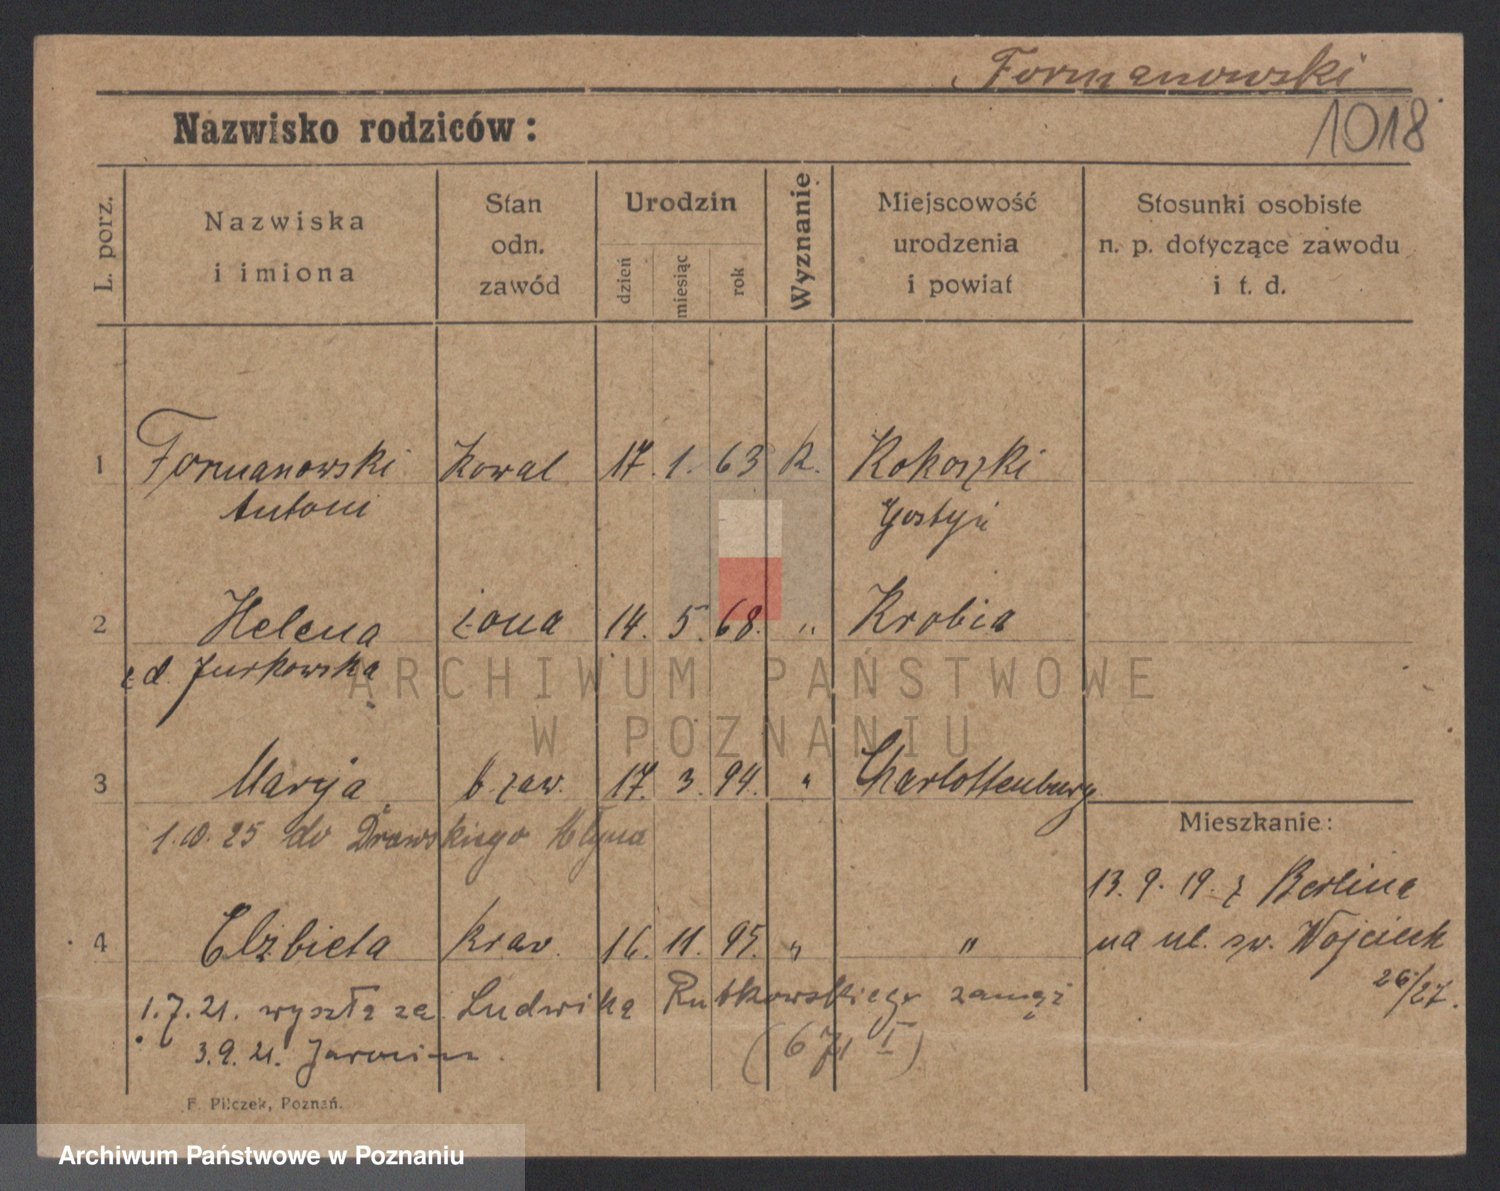 Formanowski
1018
Nazwisko rodziców:
L. porz.
Nazwiska
i imiona
Stan
odn.
zawód
Urodzin
dzień
miesiąc
rok
Wyznanie
Miejscowość
urodzenia
i powiat
Stosunki osobiste
n. p. dotyczące zawodu
i t. d.
1 Formanowski Kowal 17. 1. 63 K. Kokoszki
Antoni Gostyń
2 Helena żona 14. 5. 68. " Krobia
z d. Jurkowska
3 Maryja b. zaw. 17. 3. 94. " Charlottenburg
1.10.25 do Drawskiego Młyna
4 Elżbieta kraw. 16. 11. 95. " "
1.7.21. wyszła za Ludwika Rutkowskiego zamąż
3.9.21. Jarocin. (671 I)
Mieszkanie:
13. 9. 19. z Berlina
na ul. św. Wojciech
26/27.
F. Pilczek, Poznań.
ARCHIWUM PAŃSTWOWE
W POZNANIU
Archiwum Państwowe w Poznaniu